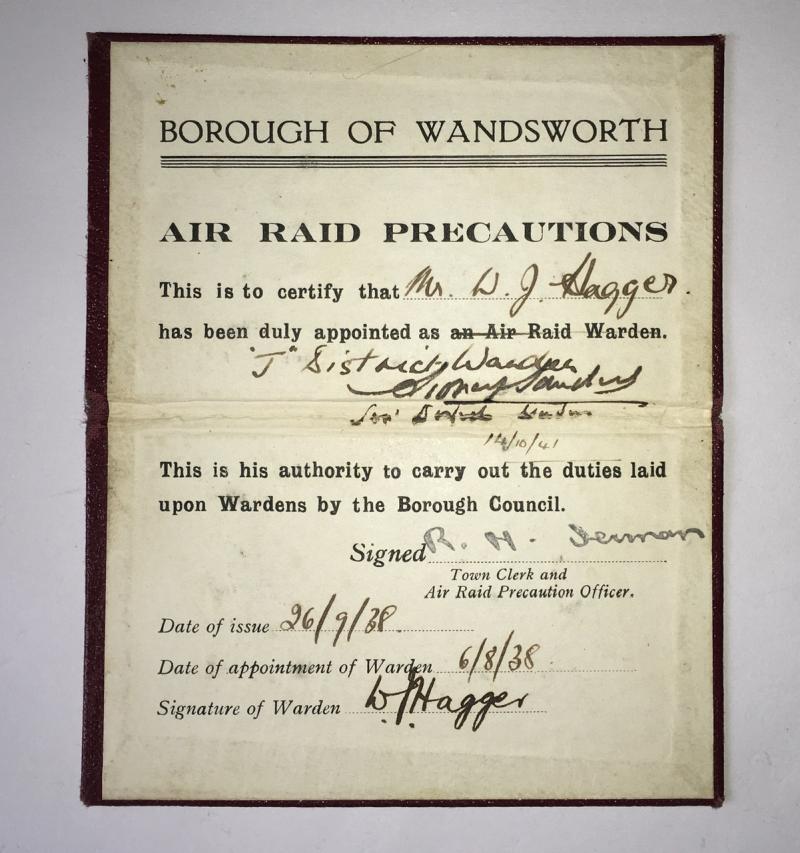 BOROUGH OF WANDSWORTH
AIR RAID PRECAUTIONS
This is to certify that Mr. W. J. Hagger.
has been duly appointed as an Air Raid Warden.
"J" District Warden
14/10/41
This is his authority to carry out the duties laid
upon Wardens by the Borough Council.
Signed R. H. Jerman
Town Clerk and
Air Raid Precaution Officer.
Date of issue 26/9/38.
Date of appointment of Warden 6/8/38
Signature of Warden W J Hagger